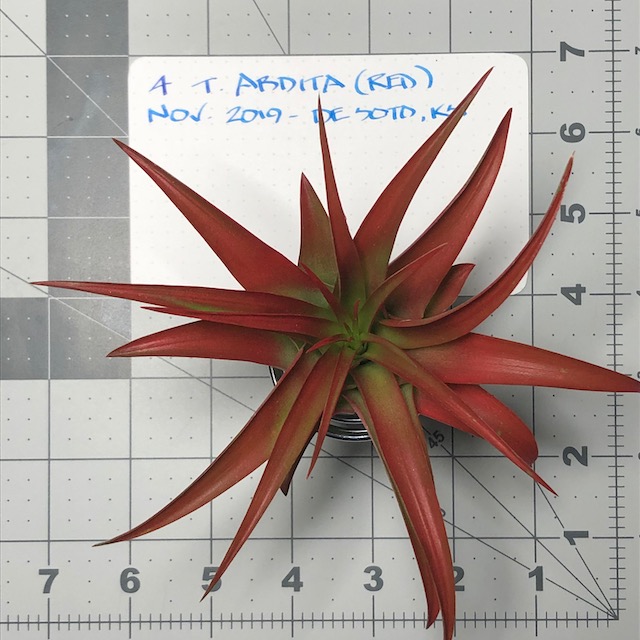 4 T. ARDITA (RED)
NOV. 2019 - DE SOTO, KS.
7
6
5
4
2
1
45
7 6 5 4 3 2 1